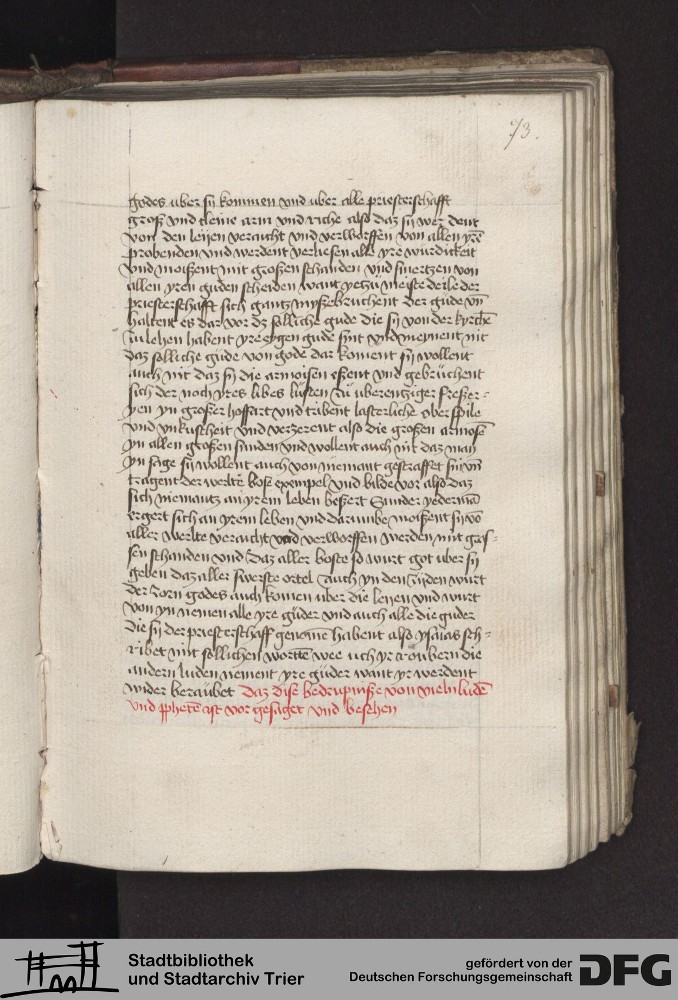 73.
godes uber sy kommen vnd uber alle priesterschafft
groß vnd kleine arm vnd riche also daz sy werdent
von den leyen veracht vnd verworffen von allen yrē
probenden vnd werdent verliesen alle yre wirdickeit
vnd moißent mit großen schanden vnd smertzen von
allen yren guden scheiden want yetzu meiste deile der
priesterschafft sich gantz myßebruchent der gude vn̄
haltent es dar vor dz solliche gude die sy von der kyrchē
zu lehen habent yre eygen gude synt vnd meynent nit
daz solliche gude von gode dar koment sy wollent
auch nit daz sy die armoisen eßent vnd gebruchent
sich der noch yres libes lusten zu uberentziger freßer-
yen yn großer hoffart vnd tribent lasterliche ober spile
vnd vnkuscheit vnd verzerent also die großen armosē
yn allen großen sunden vnd wollent auch nit daz man
yn sage sy wollent auch von niemant gestraffet syn vn̄
tragent der werlte bose exempel vnd bilde vor also daz
sich niemantz an yrem leben beßert Sunder yederman̄
ergert sich an yrem leben vnd darumbe moißent sy vō
aller werlte veracht vnd verworffen werden mit gros-
sen schanden vnd daz aller boste so wurt got uber sy
geben daz aller swerste ortel Auch yn den zijden wurt
der zorn godes auch komen uber die leyen vnd wurt
von yn nemen alle yre guder vnd auch alle die guder
die sy der priesterschaff genome habent also ysaias sch-
ribet mit sollichen wortē wee uch yr roubern die
andern luden nement yre guder want yr werdent
wider beraubet Daz dise bedrupniße von vieln ludē
vnd pphetē ist vor gesaget vnd besehen
Stadtbibliothek
und Stadtarchiv Trier
gefördert von der
Deutschen Forschungsgemeinschaft
DFG